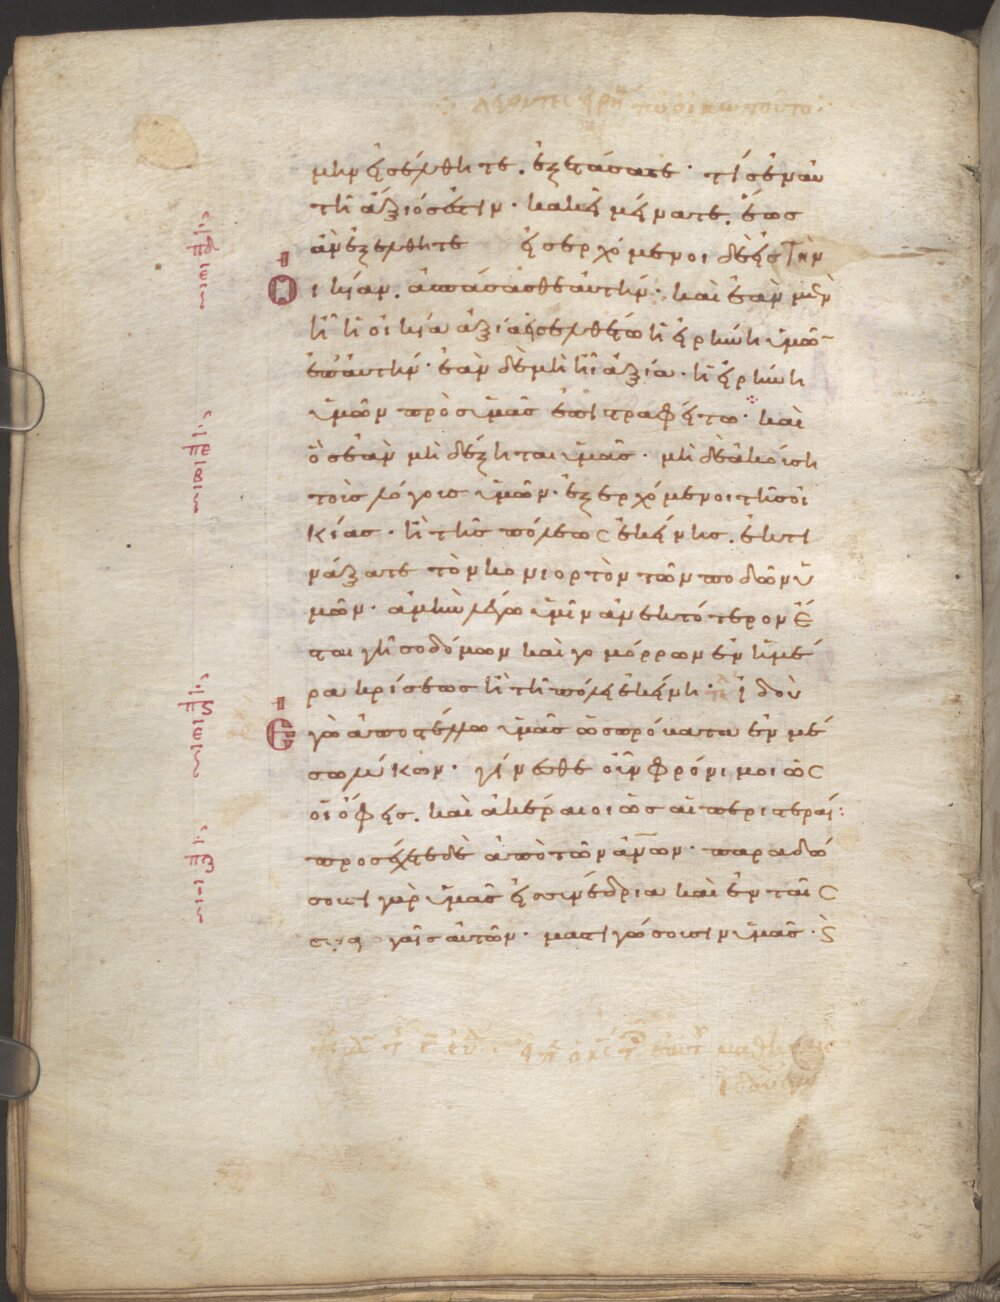 λέγοντες εἰρή τῶ οἴκω τούτο
μην εἰσέλθητε. ἐξετάσατε· τίς ἐν αυ
τῆ ἄξιός ἐστιν· κακεῖ μείνατε. ἕως
ἀν ἐξέλθητε εἰσερχόμενοι δὲ εἰς τὴν
Οικίαν. ἀσπάσασθε ἀυτήν· καὶ ἐὰν μὲν
ἦ ἡ οικία ἀξία εἰσελθέτω ἡ εἰρήνη ὑμῶ
ἐπ ἀυτήν· ἐὰν δὲ μὴ ἦ ἀξία· ἡ εἰρήνη
ὑμῶν πρὸς ὑμᾶς ἐπιτραφείτω· καὶ
ὃς ἐὰν μὴ δέξηται ὑμᾶς· μὴ δὲ ἀκούση
τοὺς λόγους ὑμῶν· ἐξερχόμενοι τῆς οἰ
κίας· ἢ τῆς πόλεως ἐκείνης. ἐκτι
νάξατε τὸν κονιορτὸν τῶν ποδῶν ὑ
μῶν· ἀμὴν λέγω ὑμῖν ἀνεκτότερον ἔ
ται γῆ σοδόμων καὶ γομόρρων ἐν ἡμέ
ρα κρίσεως ἢ τῆ πόλει ἐκείνη· ἰδοὺ
Εγὼ ἀποστέλλω ὑμᾶς ὡς πρόβατα ἐν μέ
σω λύκων· γίνεσθε οὖν φρόνιμοι ὡς
οἱ ὄφεις. καὶ ἀκέραιοι ὡς αἱ περιστεραί:
προσέχετε δὲ ἀπὸ τῶν ἀνων· παραδώ
σουσι γὰρ ὑμᾶς εἰς συνέδρια καὶ ἐν ταῖς
συναγωγαῖς αὐτῶν· μαστιγώσουσιν ὑμᾶς· ϗ
πδ
ε
πε
β
πς
ε
πζ